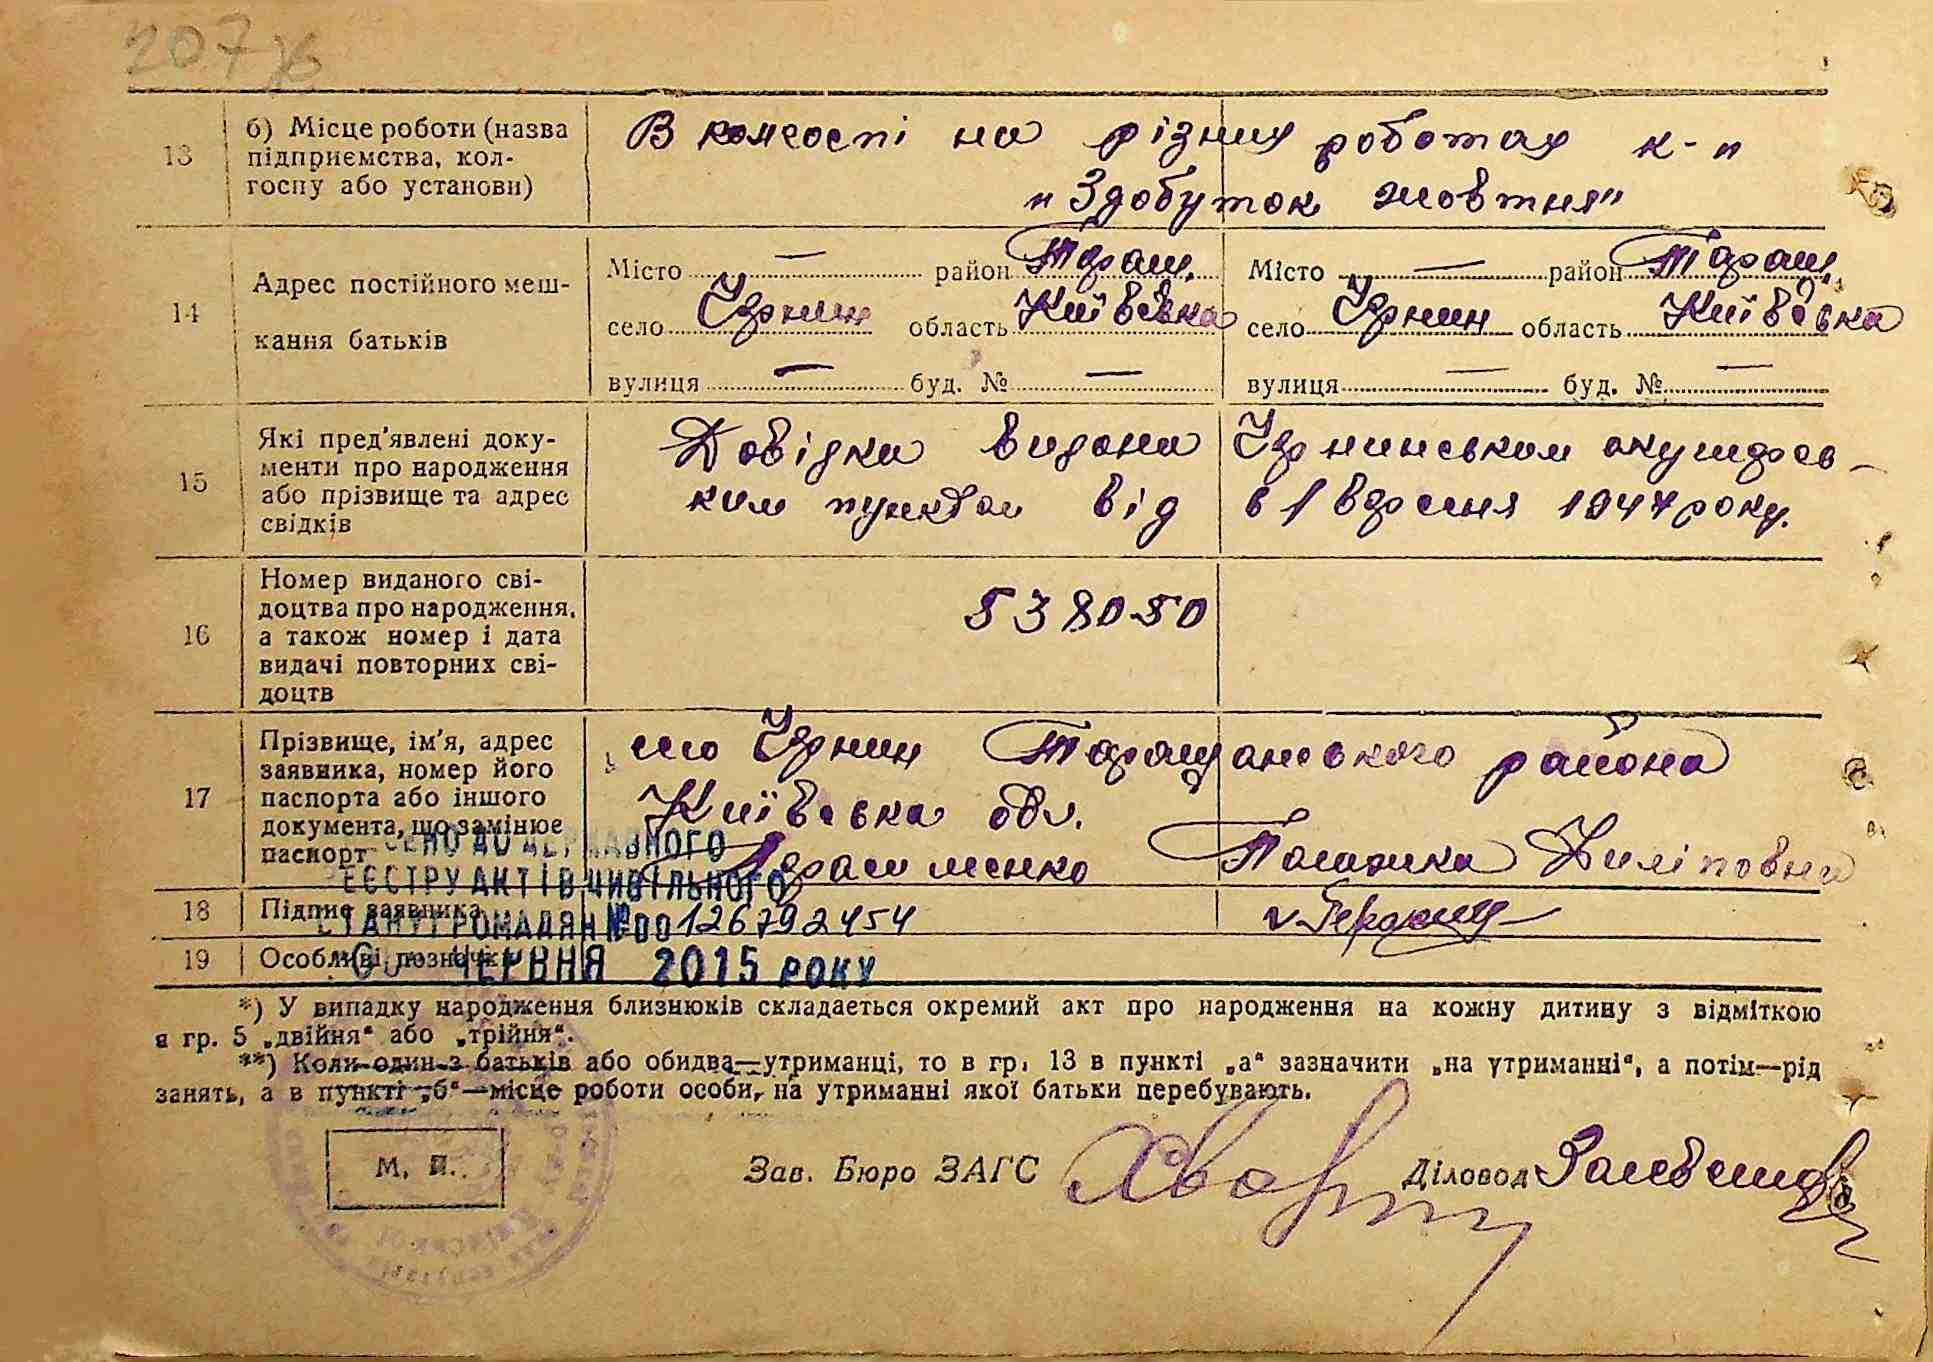 207 зв
13 б) Місце роботи (назва підприємства, колгоспу або установи)
В колгоспі на різних роботах к-п
"Здобуток жовтня"
14 Адрес постійного мешкання батьків
Місто — район Таращ. Місто — район Таращ.
село Чернин область Київська село Чернин область Київська
вулиця — буд. № — вулиця — буд. № —
15 Які пред'явлені документи про народження або прізвище та адрес свідків
Довідка видана Чернинським акушерсь-
ким пунктом від 1 вересня 1947 року.
16 Номер виданого свідоцтва про народження, а також номер і дата видачі повторних свідоцтв
538050
17 Прізвище, ім'я, адрес заявника, номер його паспорта або іншого документа, що замінює паспорт
село Чернин Таращанського района
Київська обл.
Герасименко Пилиповна
ДО ДЕРЖАВНОГО
РЕЄСТРУ АКТІВ ЦИВІЛЬНОГО
18 Підпис заявника
СТАНУ ГРОМАДЯН № 00126792454
19 Особливі позначки
ЧЕРВНЯ 2015 РОКУ
*) У випадку народження близнюків складається окремий акт про народження на кожну дитину з відміткою
в гр. 5 „двійня“ або „трійня“.
**) Коли один з батьків або обидва—утриманці, то в гр. 13 в пункті „а“ зазначити „на утриманні“, а потім—рід
занять, а в пункті „б“—місце роботи особи, на утриманні якої батьки перебувають.
М. П. Зав. Бюро ЗАГС Діловод